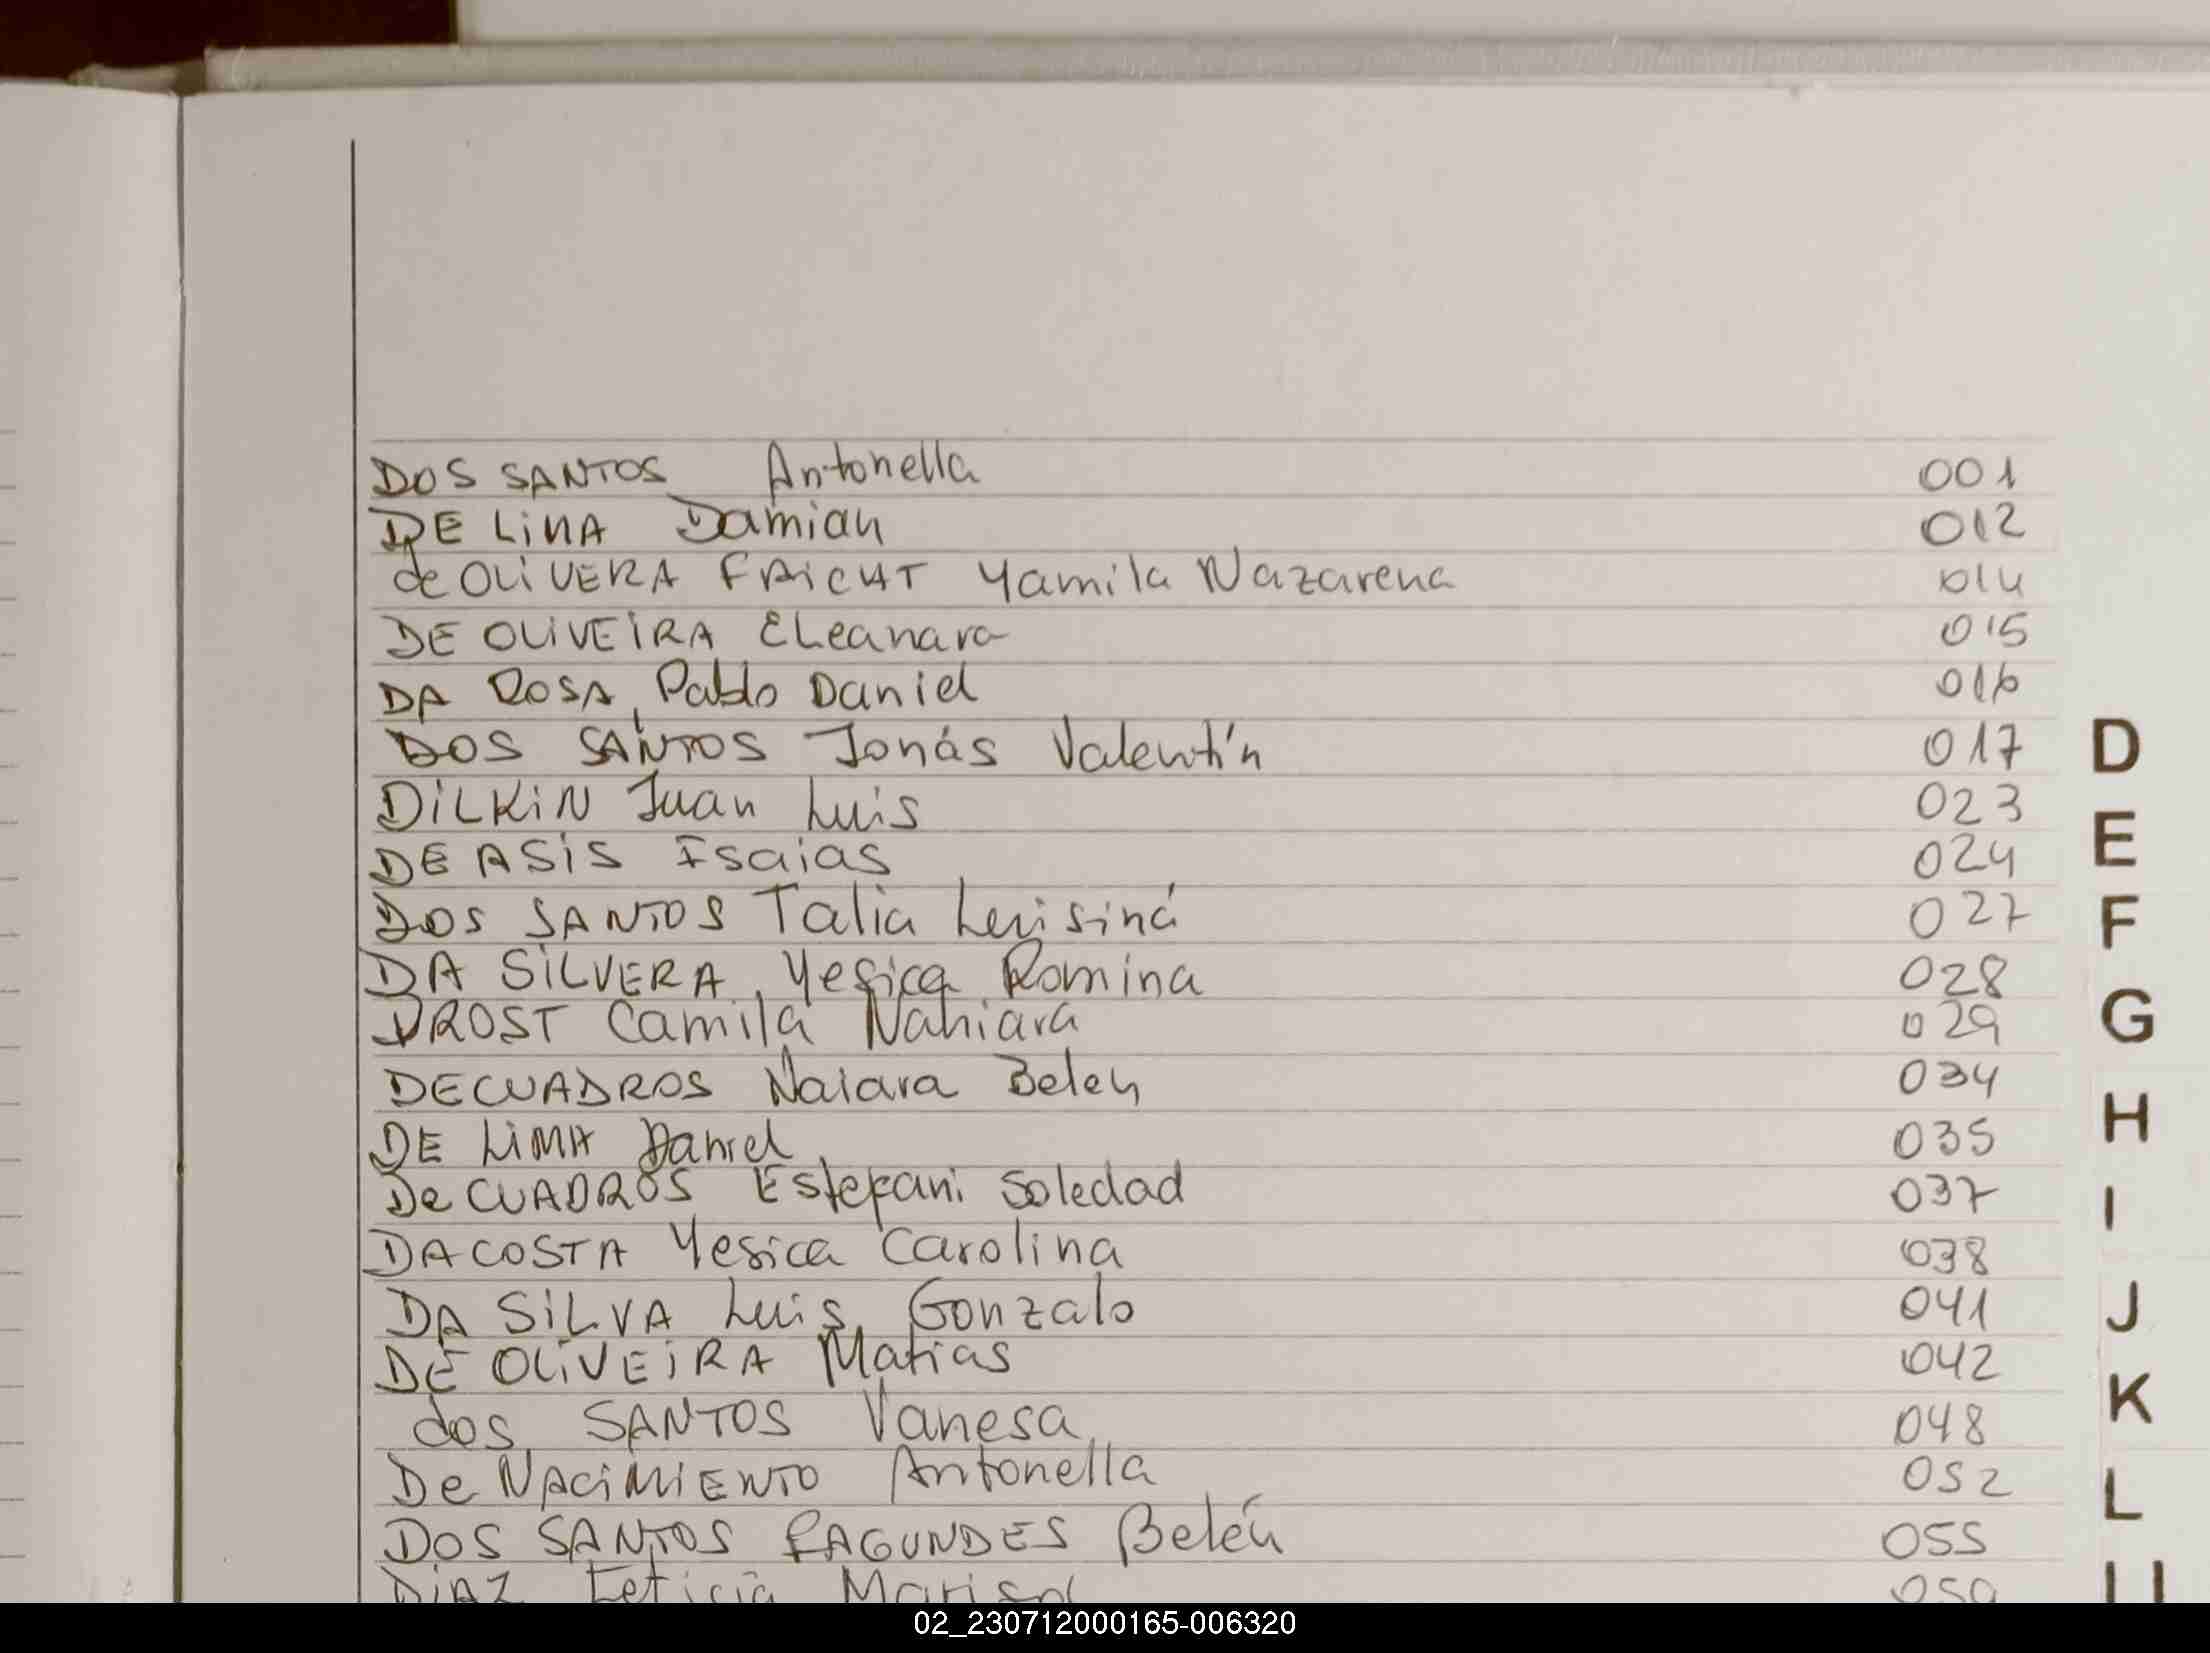 DOS SANTOS Antonella 001
DE LiMA Damian 012
de OLiVERA FRiCHT Yamila Nazarena 014
DE OLiVEiRA ELeanara 015
DA ROSA, Pablo Daniel 016
DOS SANTOS Jonás Valentín 017
DiLKiN Juan Luis 023
DE ASiS Isaias 024
DOS SANTOS Talia Luisiná 027
DA SiLVERA, Yesica Romina 028
DROST Camila Nahiara 029
DECUADROS Naiara Belen 034
DE LiMA Daniel 035
De CUADROS Estefani Soledad 037
DACOSTA Yesica Carolina 038
DA SiLVA Luis Gonzalo 041
DE OLiVEiRA Matias 042
dos SANTOS Vanesa 048
De NACiMiENTO Antonella 052
DOS SANTOS FAGUNDES Belén 055
DiAZ Leticia Marisol 059
D
E
F
G
H
I
J
K
L
02_230712000165-006320